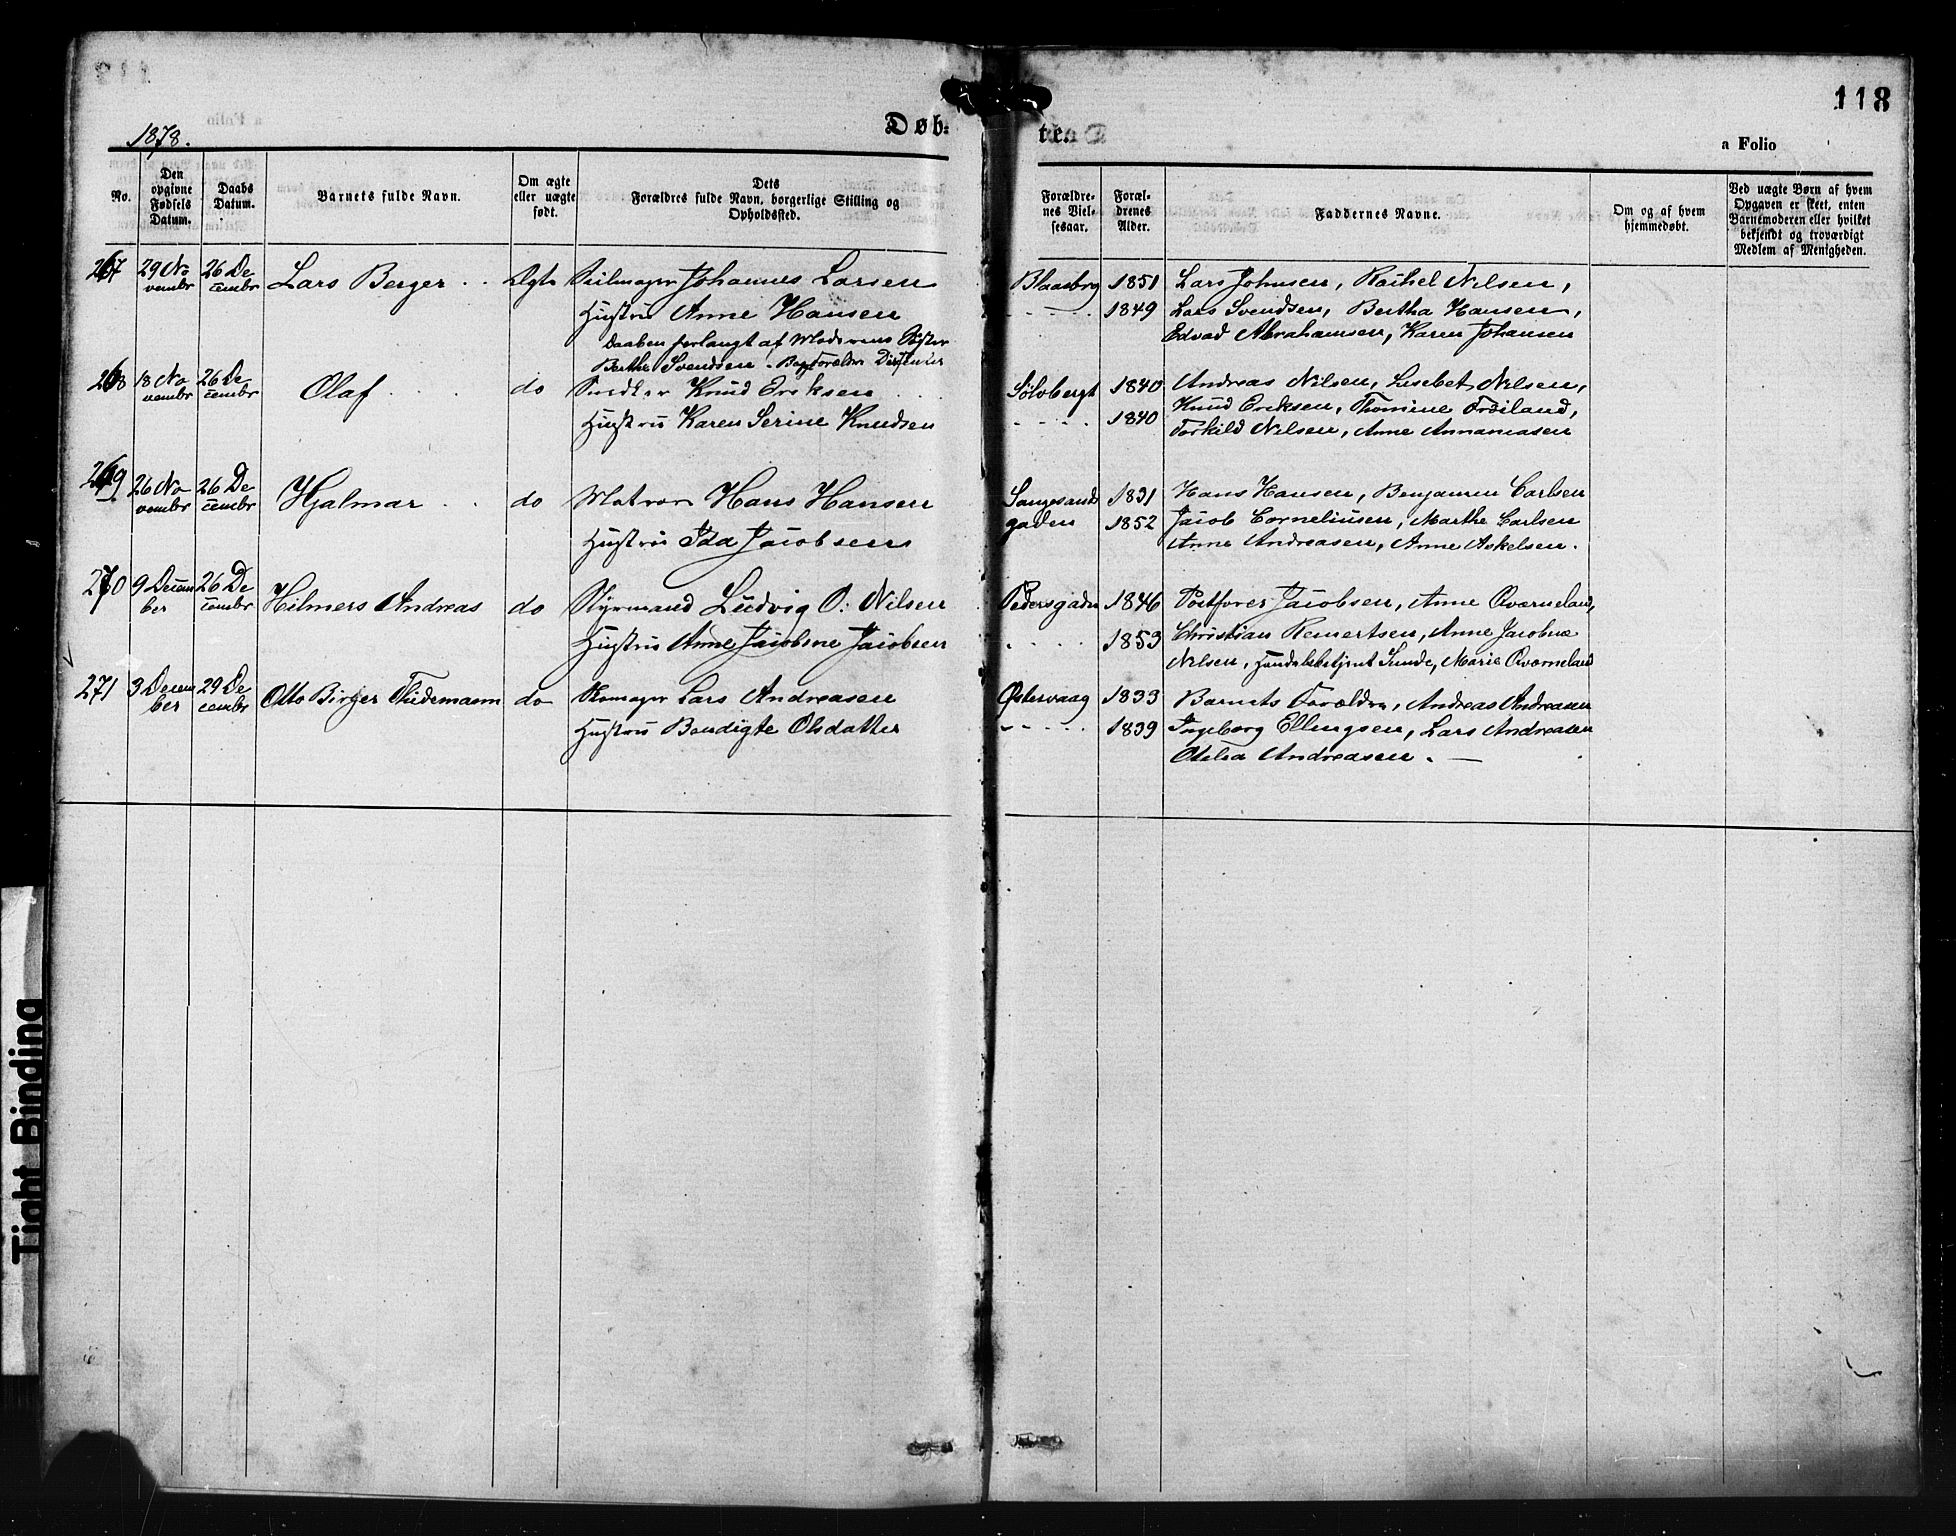 118
1878.
Døb=
te.
a Folio
No.
Den opgivne Fødsels Datum.
Daabs Datum.
Barnets fulde Navn.
Om ægte eller uægte født.
Dets Forældres fulde Navn, borgerlige Stilling og Opholdssted.
Forældrenes Vielsesaar.
Forældrenes Alder.
Faddernes Navne.
Om og af hvem hjemmedøbt.
Ved uægte Børn af hvem Opgaven er skeet, enten Barnemoderen eller hvilket bekjendt og troværdigt Medlem af Menigheden.
267 29 No 26 De Lars Berger Ægte Seilmager Johannes Larsen Blaasbrg 1851 Lars Johnsen, Rachel Nilsen,
vembr cembr Hustru Anne Hansen 1849 Lars Svendsen, Bertha Hansen,
Daaben forlangt af Moderens Søster Edvad Abrahamsen, Karen Johansen
Berthe Svendsen. Forældre Dissenter
268 18 No 26 De Olaf do Snedker Knud Ereksen Sölvbergt 1840 Andreas Nilsen, Lisebet Nilsen,
vembr cembr Hustru Karen Serine Knudsen 1840 Knud Ereksen, Thomine Froiland,
Torkild Nilsen, Anne Annaniasen
269 26 No 26 De Hjalmar do Matros Hans Hansen Langesands 1831 Hans Hansen, Benjamin Carlsen
vembr cembr Hustru Ida Jacobsen gaden 1852 Jacob Corneliusen, Marthe Carlsen
Anne Andreasen, Anne Askelsen.
270 9 Decem 26 De Hilmers Andreas do Styrmand Ludvig O: Nilsen Pedersgaden 1846 Postfører Jacobsen, Anne Qværneland,
ber cembr Hustru Anne Jacobine Jacobsen 1853 Christian Reinertsen, Anne Jacobine
Nilsen, Handelsbetjent Sunde, Marie Qværneland
271 3 Decem 29 De Otto Birger Tidemann do Skomager Lars Andreasen Østervaag 1833 Barnets Forældre, Andreas Andreasen
ber cembr Hustru Bendigte Olsdatter 1839 Ingeborg Ellingsen, Lars Andreasen
Otelia Andreasen. —
Tight Binding